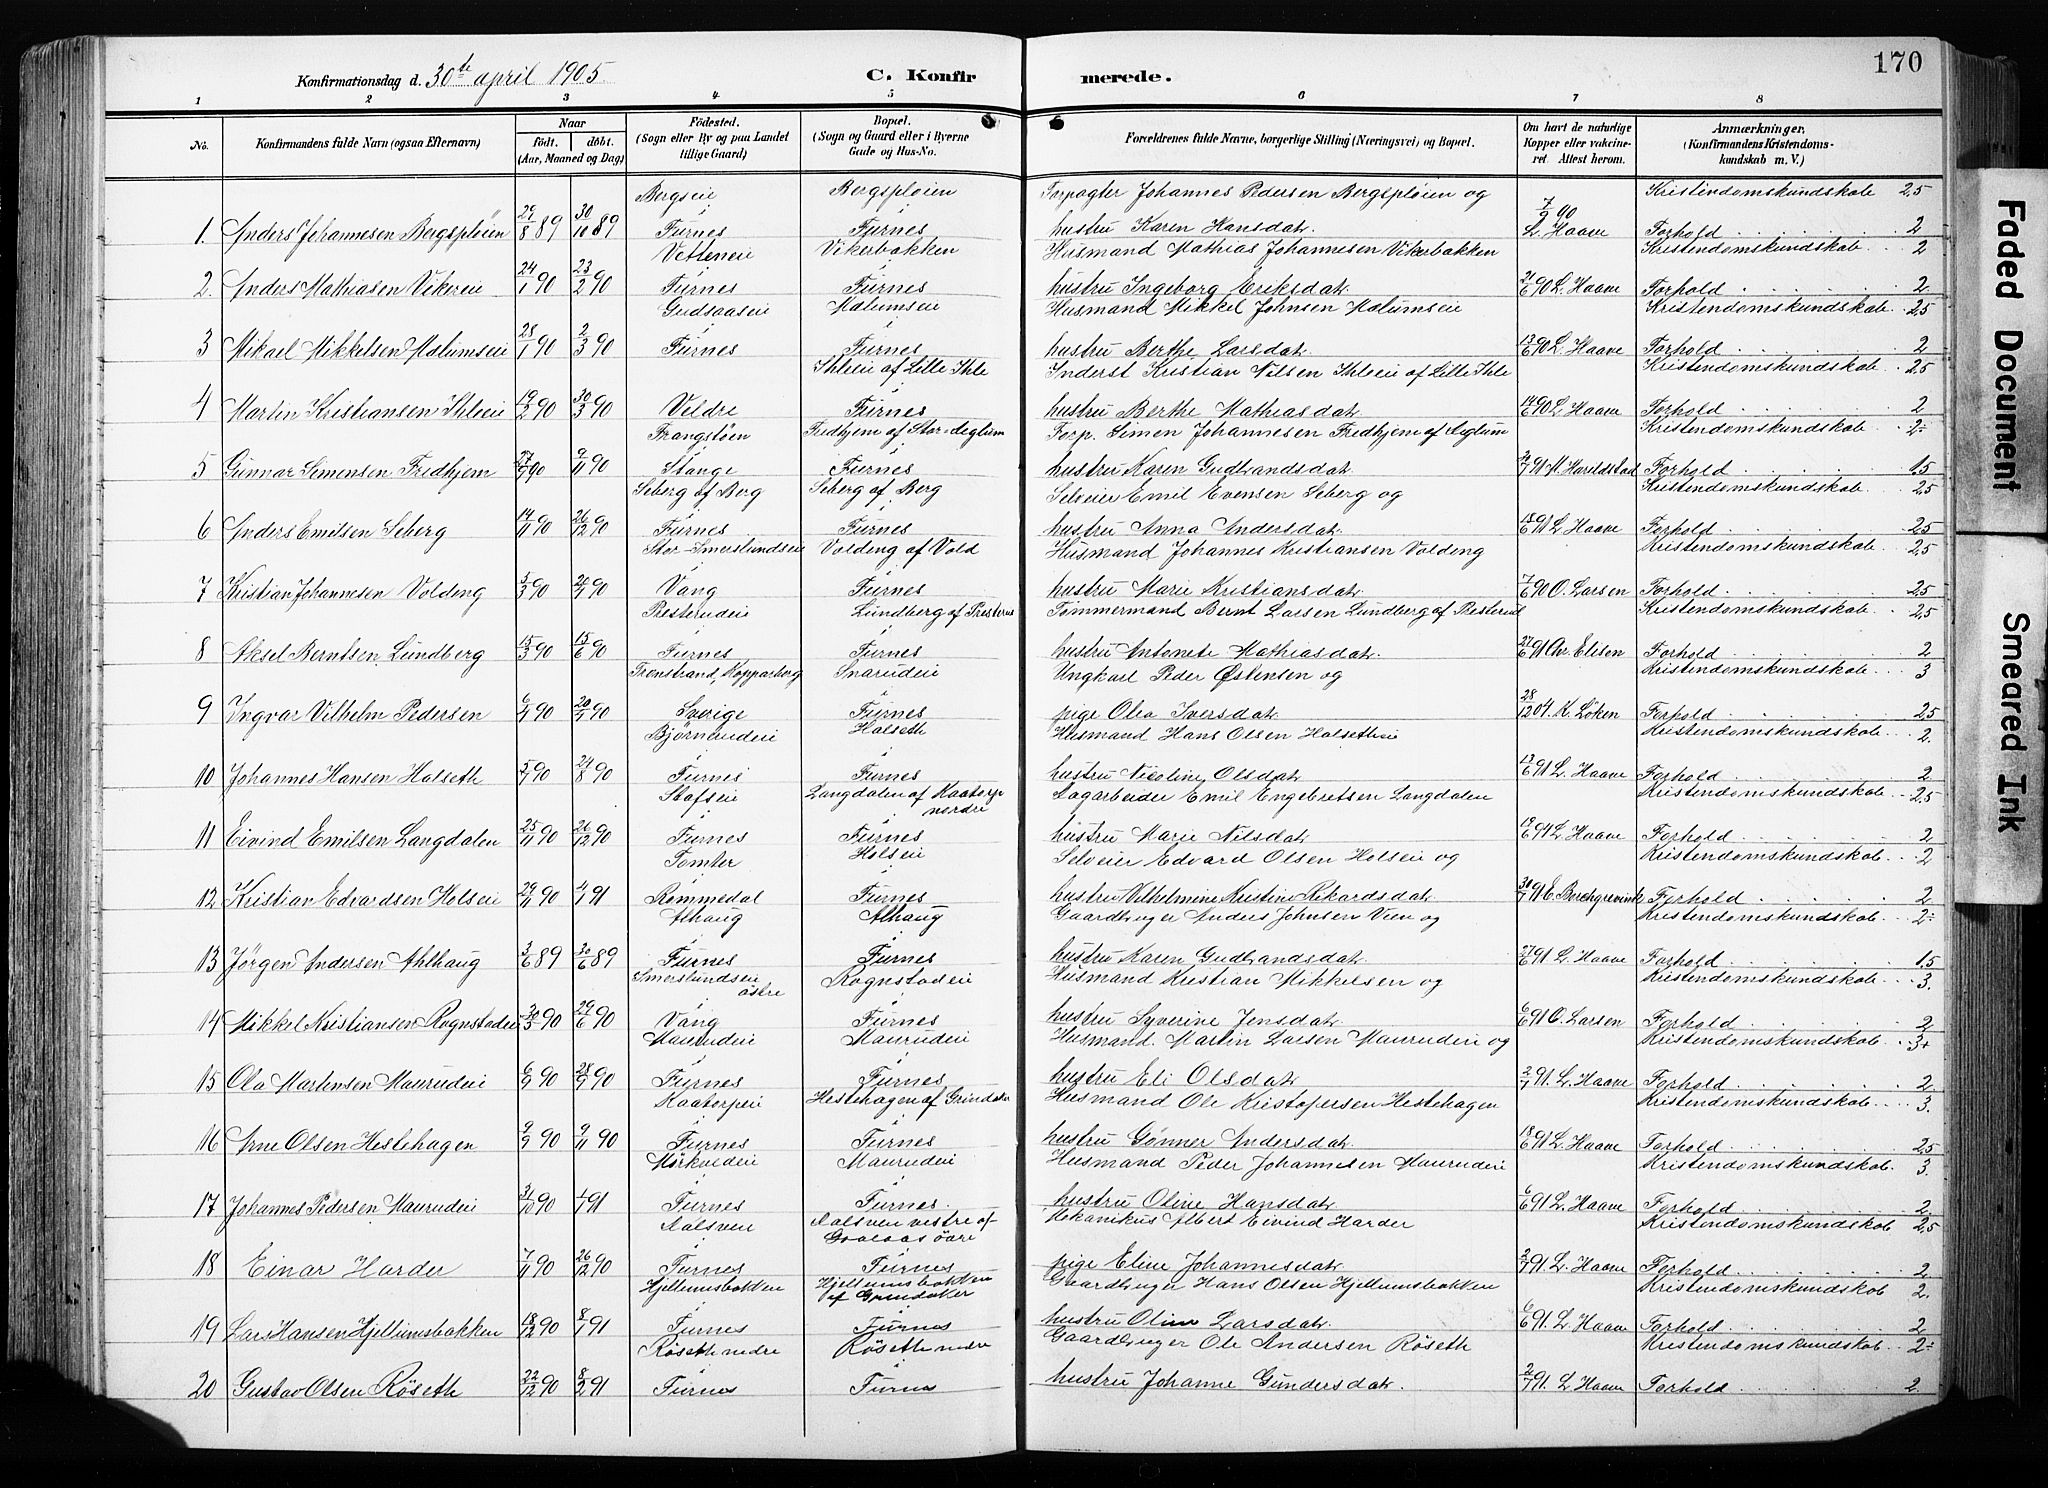 170
Konfirmationsdag d. 30te april 1905
C. Konfirmerede.
1 2 3 4 5 6 7 8
No.
Konfirmandens fulde Navn (ogsaa Efternavn)
Naar
født. døbt.
(Aar, Maaned og Dag)
Födested.
(Sogn eller By og paa Landet
tillige Gaard)
Bopæl.
(Sogn og Gaard eller i Byerne
Gade og Hus-No.
Forældrenes fulde Navne, borgerlige Stilling (Næringsvei) og Bopæl.
Om havt de naturlige
Kopper eller vakcine-
ret. Attest herom.
Anmærkninger.
(Konfirmandens Kristendoms-
kundskab m. V.)
Bergseie Bergspløien Forpagter Johannes Pedersen Bergspløien og Kristendomskundskab 2,5
1. Anders Johannesen Bergspløien 29/8 89 30/10 89 i Furnes i Furnes hustru Karen Hansdat. 7/9 90 L. Haave Forhold 2
Vetteneie Vikerbakken Husmand Mathias Johannesen Vikerbakken Kristendomskundskab 2
2. Anders Mathiasen Vikereie 24/1 90 23/2 90 i Furnes i Furnes hustru Ingeborg Eriksdat. 21/6 90 L. Haave Forhold 2
Gudsaaseie Malumseie Husmand Mikkel Johnsen Malumseie Kristendomskundskab 2,5
3 Mikael Mikkelsen Malumseie 28/1 90 2/3 90 i Furnes i Furnes hustru Berthe Larsdat. 13/6 90 L. Haave Forhold 2
Ihleie af Lille Ihle Inderst Kristian Nilsen Ihleie af Lille Ihle Kristendomskundskab 2,5
4 Martin Kristiansen Ihleie 19/2 90 30/3 90 Veldre i Furnes hustru Berthe Mathiasdat. 14/6 90 L. Haave Forhold 2
Frangstøen Fredhjem af Stor-Aeglum Forp. Simen Johannesen Fredhjem af Aeglum Kristendomskundskab 2÷
5 Gunnar Simensen Fredhjem 27/7 90 9/11 90 i Stange i Furnes hustru Karen Gudbrandsdat. 91 M. Haraldstad Forhold 1,5
Seberg af Berg Seberg af Berg Selveier Emil Evensen Seberg og Kristendomskundskab 2,5
6 Anders Emilsen Seberg 14/11 90 26/12 90 i Furnes i Furnes hustru Anna Andersdat. 18/6 91 L. Haave Forhold 2,5
Stor-Smerslundseie Voldeng af Vold Husmand Johannes Kristiansen Voldeng Kristendomskundskab 2,5
7 Kristian Johannesen Voldeng 5/3 90 90 i Vang i Furnes hustru Marie Kristiansdat. 7/6 90 O. Larsen Forhold 2,5
Presterudeie Lundberg af Presterud Tømmermand Bernt Larsen Lundberg af Presterud Kristendomskundskab 2,5
8 Aksel Berntsen Lundberg 15/3 90 15/6 90 i Furnes i Furnes hustru Antonete Mathiasdat. 27/6 91 Chr. Elisen Forhold 2
Trenstrand, Kopparberg Snarudeie Ungkarl Peder Østensen og Kristendomskundskab 3
9 Ingvar Vilhelm Pedersen 6/4 90 20/4 90 Sverige i Furnes pige Olea Iversdat. 28/12 04. K. Løken Forhold 2,5
Bjørnerudeie Halseth Husmand Hans Olsen Halsetheie Kristendomskundskab 2.
10 Johannes Hansen Halseth 5/7 90 24/8 90 i Furnes i Furnes hustru Nicoline Olsdat. 13/6 91 L. Haave Forhold 2
Stafseie Langdalen af Kaatorp nordre Dagarbeider Emil Engebretsen Langdalen Kristendomskundskab 2,5
11 Eivind Emilsen Langdalen 25/11 90 26/12 90 i Furnes i Furnes hustru Marie Nilsdat. 19/6 94 L. Haave Forhold 2
Tomter Holseie Selveier Edvard Olsen Holseie og Kristendomskundskab 2
12 Kristian Edvardsen Holseie 29/11 90 4/1 91 i Rommedal i Furnes hustru Vilhelmine Kristine Rikardsdat. 30/7 91 E. Borchgrevink Forhold 2
Alhaug Alhaug Gaardbruger Anders Johnsen Vien og Kristendomskundskab 2÷
13 Jørgen Andersen Ahlhaug 3/6 89 30/6 89 i Furnes i Furnes hustru Karen Gudbrandsdat. 27/6 91 L. Haave Forhold 1,5
Smerslundseie østre Rognstadeie Husmand Kristian Mikkelsen og Kristendomskundskab 3.
14 Mikkel Kristiansen Rognstadeie 30/5 90 29/6 90 Vang i Furnes hustru Syverine Jensdat. 6/6 91 O. Larsen Forhold 2
Maurudeie Maurudeie Husmand Martin Larsen Maurudeie og Kristendomskundskab 3+
15 Ola Martinsen Maurudeie 6/9 90 28/9 90 i Furnes i Furnes hustru Eli Olsdat. 2/7 91. L. Haave Forhold 2
Kaatorpeie Hestehagen af Grindaker Husmand Ole Kristofersen Hestehagen Kristendomskundskab 3.
16 Arne Olsen Hestehagen 9/9 90 9/11 90 i Furnes i Furnes hustru Gønner Andersdat. 18/6 91 L. Haave Forhold 2,5
Mørkvedeie Maurudeie Husmand Peder Johannesen Maurudeie Kristendomskundskab 3.
17 Johannes Pedersen Maurudeie 31/10 90 4/1 91 i Furnes i Furnes. hustru Oline Hansdat. 6/6 91 L. Haave Forhold 2.
Aalsveen Aalsveen vestre af Gaalaas øvre Mekanikus Albert Eivind Harder Kristendomskundskab 2,5
18 Einar Harder 7/11 90 26/12 90 i Furnes i Furnes pige Eline Johannesdat. 2/7 91. L. Haave Forhold 2
Hjellumsbakken Hjellumsbakken af Grindaker Gaardbruger Hans Olsen Hjellumsbakken Kristendomskundskab 2.
19 Lars Hansen Hjellumsbakken 18/12 90 8/1 91 i Furnes i Furnes hustru Oline Larsdat. 6/6 91. L. Haave Forhold 2
Røseth nedre Røseth nedre Gaardbruger Ole Andersen Røseth Kristendomskundskab 2÷
20 Gustav Olsen Røseth 22/12 90 8/2 91 i Furnes i Furnes hustru Johanne Gundersdat. 2/7 91. L Haave Forhold 2
Faded Document
Smeared Ink